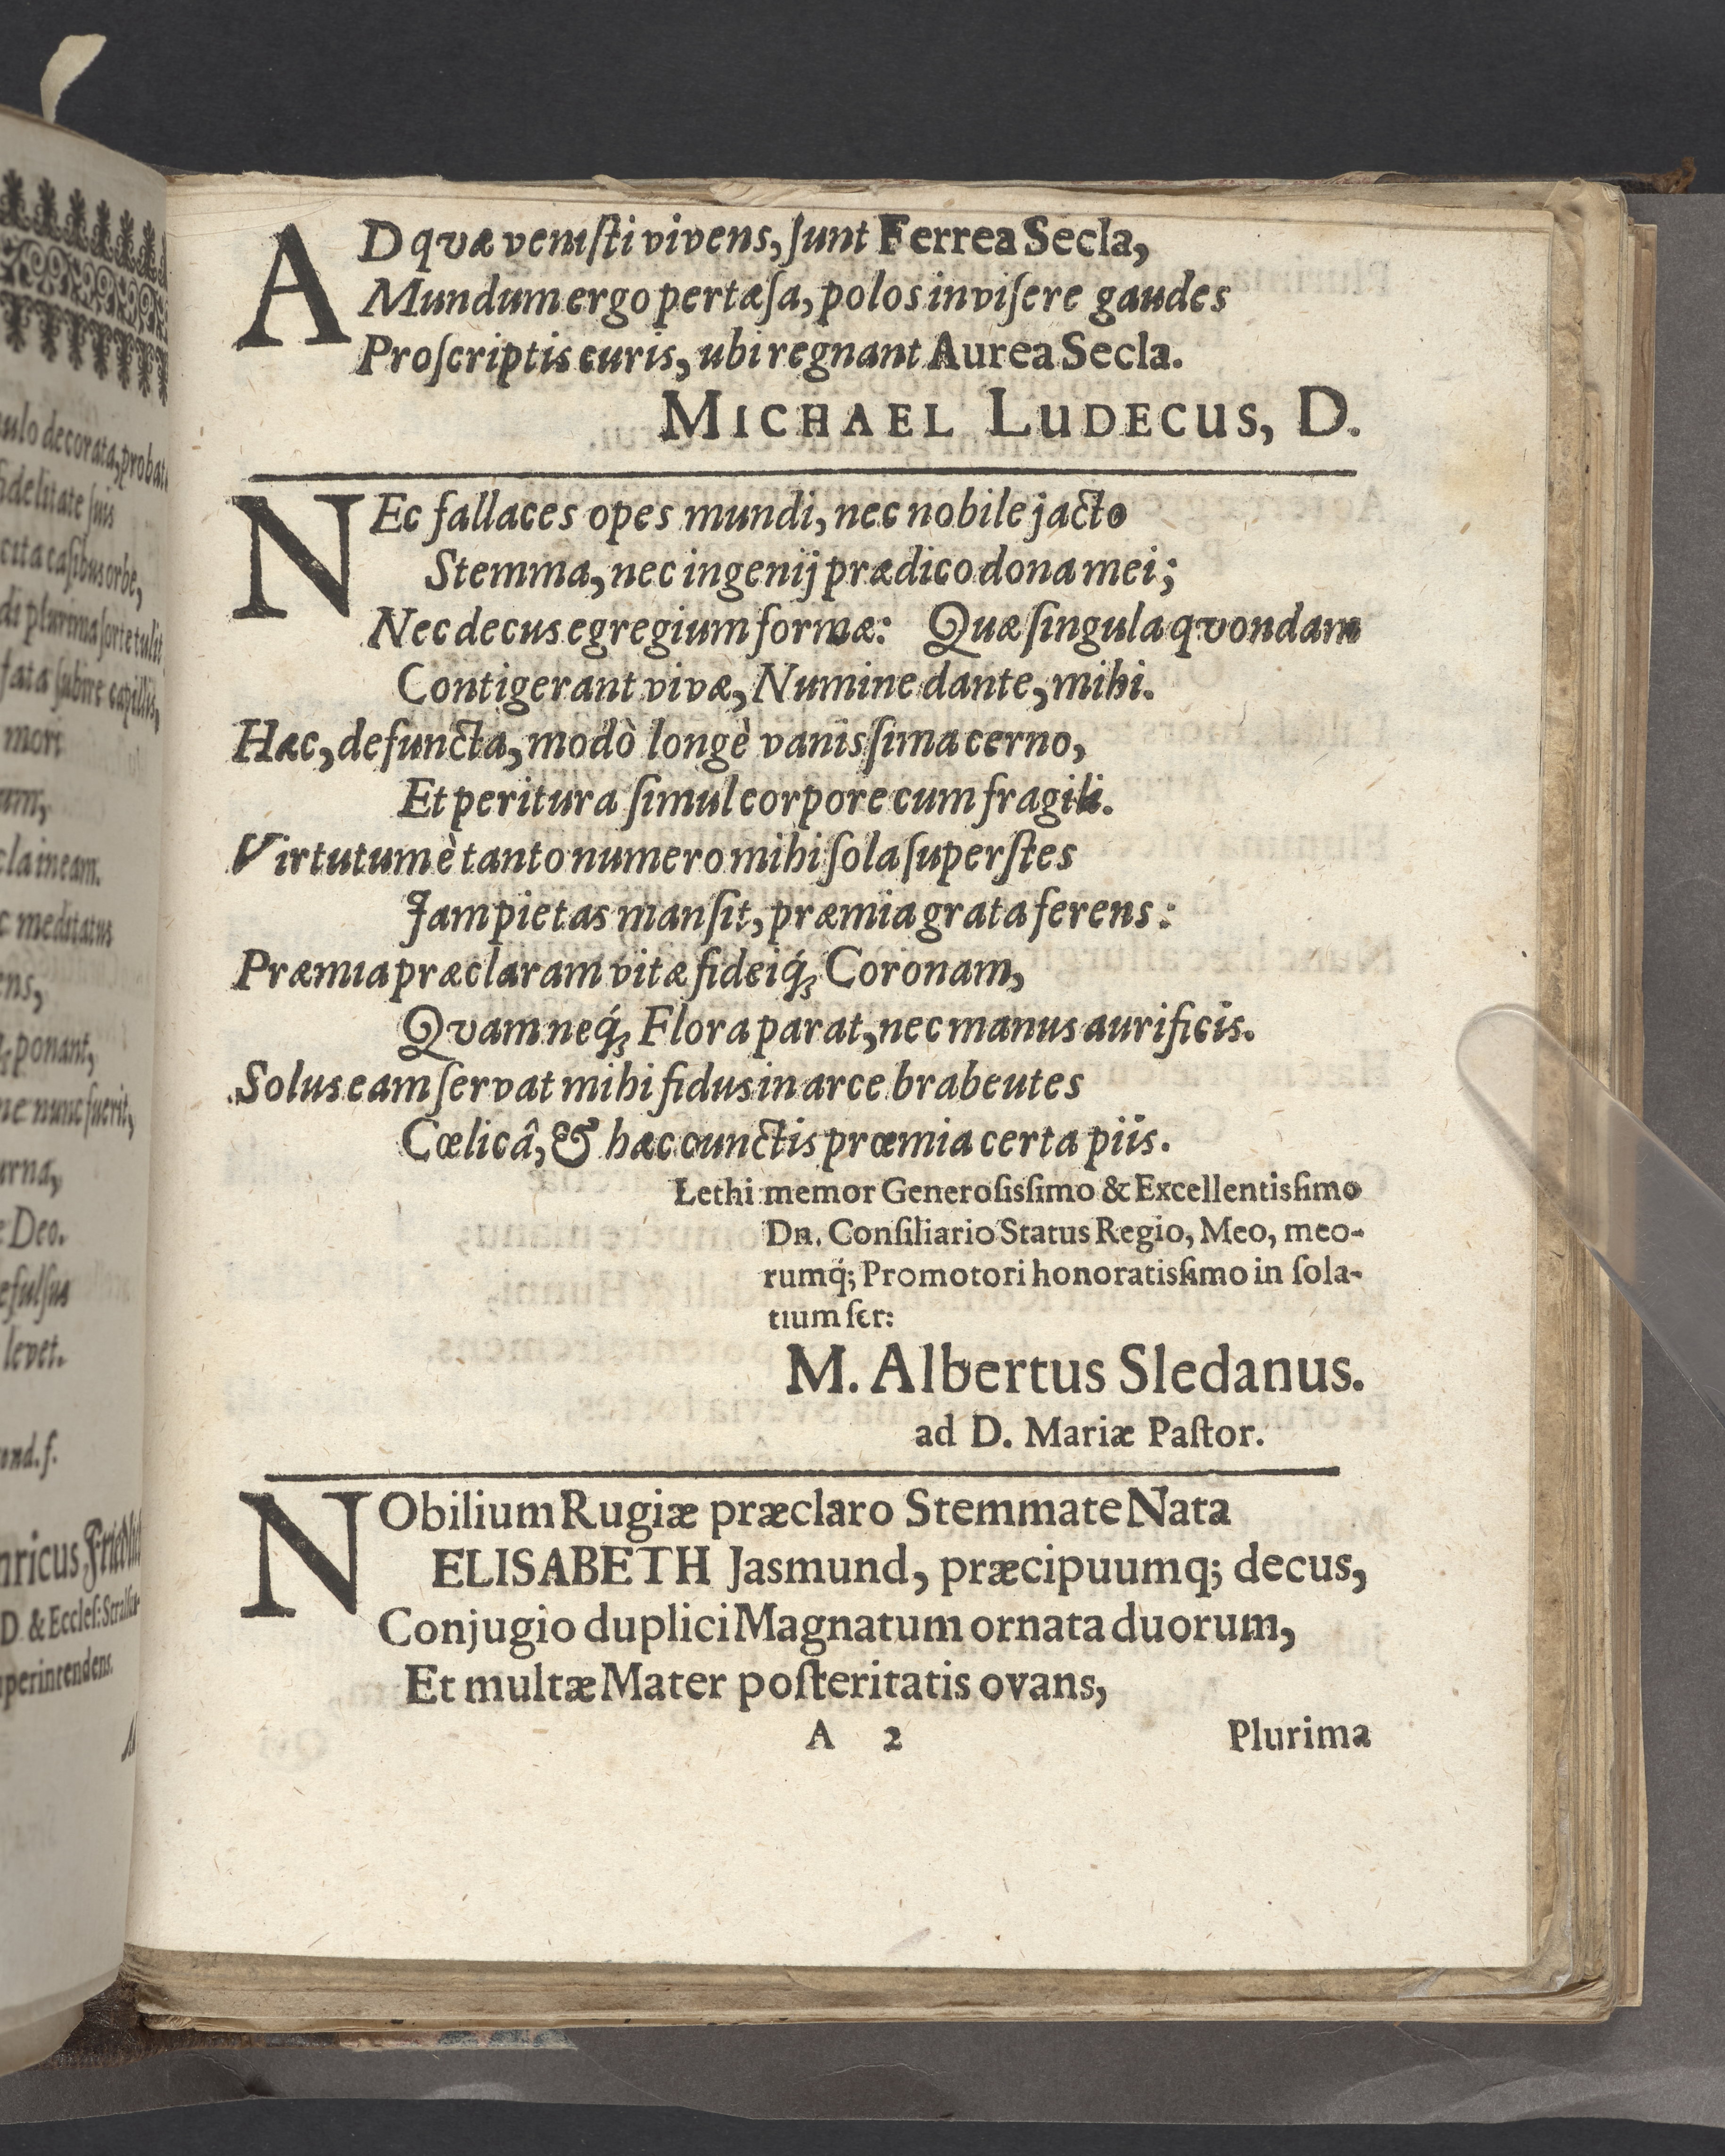 AD qvæ venisti vivens, sunt Ferrea Secla,
Mundum ergo pertæsa, polos invisere gaudes
Proscriptis curis, ubi regnant Aurea Secla.
MICHAEL LUDECUS, D.
NEc fallaces opes mundi, nec nobile jacto
Stemma, nec ingenij prædico dona mei;
Nec decus egregium formæ: Quæ singula qvondam
Contigerant vivæ, Numine dante, mihi.
Hæc, defuncta, modò longè vanissima cerno,
Et peritura simul corpore cum fragili.
Virtutum è tanto numero mihi sola superstes
Jam pietas mansit, præmia grata ferens:
Præmia præclaram vitæ fideiq́; Coronam,
Qvam neq́; Flora parat, nec manus aurificis.
Solus eam servat mihi fidus in arce brabeutes
Cœlicâ, & hæc cunctis prœmia certa piis.
Lethi memor Generosissimo & Excellentissimo
Dn. Consiliario Status Regio, Meo, meo-
rumq́; Promotori honoratissimo in sola-
tium fer:
M. Albertus Sledanus.
ad D. Mariæ Pastor.
NObilium Rugiæ præclaro Stemmate Nata
ELISABETH Jasmund, præcipuumq; decus,
Conjugio duplici Magnatum ornata duorum,
Et multæ Mater posteritatis ovans,
A 2 Plurima